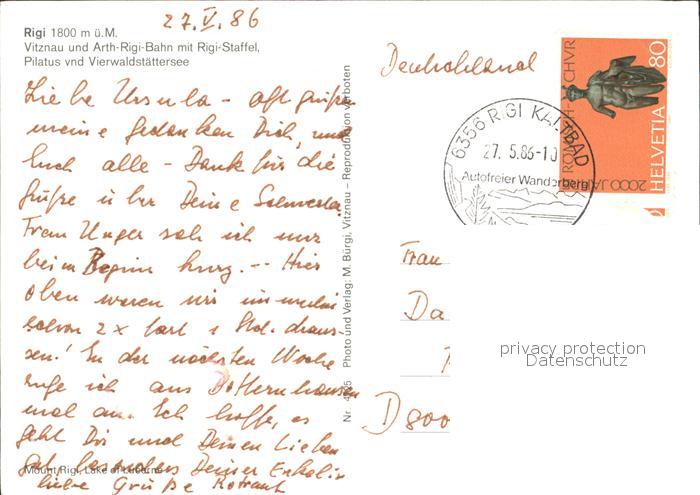 27.V.86
Rigi 1800 m ü.M.
Vitznau und Arth-Rigi-Bahn mit Rigi-Staffel,
Pilatus vnd Vierwaldstättersee
Liebe Ursula - oft grüßen
meine Gedanken Dich, und
Euch alle - Dank für die
Grüße über Deine Schwester.
Frau Unger sah ich nur
beim Beginn kurz. -- Hier
oben waren wir
schon 2x fast 1 Std. draus-
sen! In der nächsten Woche
rufe ich aus
mal an. Ich hoffe, es
geht Dir und Deinen Lieben
gut, besonders Deiner Enkelin
liebe Grüße
Mount Rigi, Lake of Lucerne
Photo und Verlag: M. Bürgi, Vitznau – Reproduktion verboten
Nr.
Deutschland
6356 RIGI KALTBAD
27.5.86-10
Autofreier Wanderberg
2000 JAHRE RÖMISCH CHUR
HELVETIA 80
Frau
Da
D 800
privacy protection
Datenschutz